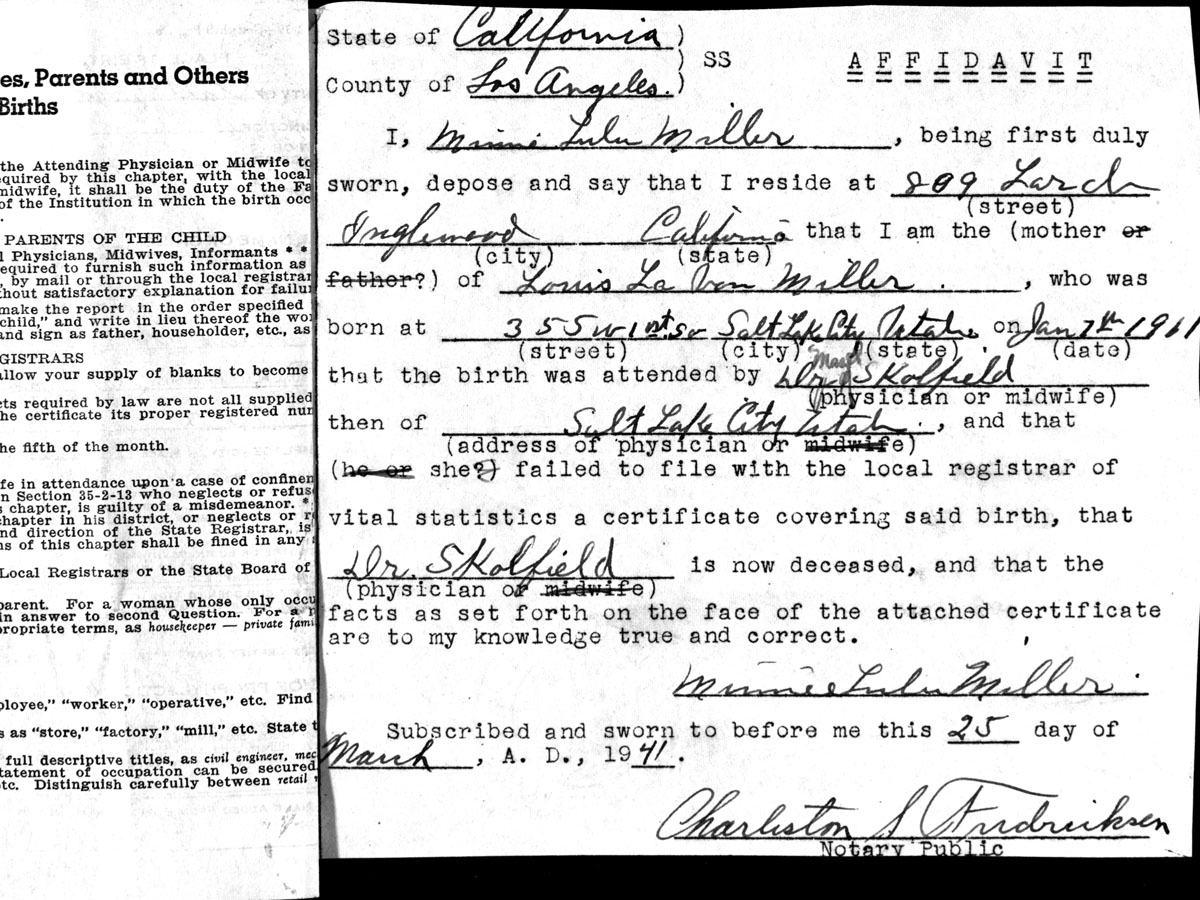 es, Parents and Others
Births
the Attending Physician or Midwife to
quired by this chapter, with the local
midwife, it shall be the duty of the Fa
of the Institution in which the birth occ
.
PARENTS OF THE CHILD
l Physicians, Midwives, Informants * *
equired to furnish such information as
, by mail or through the local registrar
hout satisfactory explanation for failu
make the report in the order specified
child," and write in lieu thereof the wo
and sign as father, householder, etc., as
GISTRARS
allow your supply of blanks to become
cts required by law are not all supplied
he certificate its proper registered nu
he fifth of the month.
fe in attendance upon a case of confinem
n Section 35-2-13 who neglects or refus
s chapter, is guilty of a misdemeanor. *
chapter in his district, or neglects or r
nd direction of the State Registrar, is
ns of this chapter shall be fined in any
Local Registrars or the State Board of
parent. For a woman whose only occu
in answer to second Question. For a
ropriate terms, as housekeeper — private fami
ployee," "worker," "operative," etc. Find
s as "store," "factory," "mill," etc. State t
full descriptive titles, as civil engineer, mec
tatement of occupation can be secured
etc. Distinguish carefully between retail
State of California )
) SS AFFIDAVIT
County of Los Angeles. )
I, Minnie Lulu Miller , being first duly
sworn, depose and say that I reside at 809 Larch
(street)
Inglewood California that I am the (mother or
(city) (state)
father?) of Louis La Von Miller . , who was
born at 355 W 1st So Salt Lake City Utah on Jan 7th 1961
(street) (city) (state) (date)
that the birth was attended by Dr. Skolfield
(physician or midwife)
then of Salt Lake City Utah. , and that
(address of physician or midwife)
(he or she?) failed to file with the local registrar of
vital statistics a certificate covering said birth, that
Dr. Skolfield is now deceased, and that the
(physician or midwife)
facts as set forth on the face of the attached certificate
are to my knowledge true and correct.
Minnie Lulu Miller.
Subscribed and sworn to before me this 25 day of
March , A. D., 1941.
Charleston S Fredricksen
Notary Public